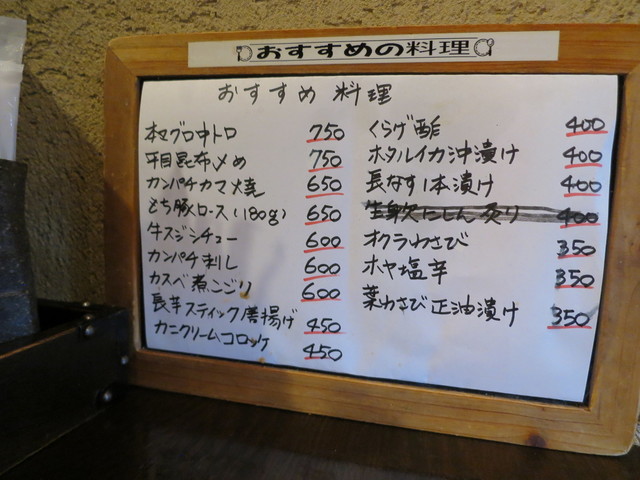 おすすめの料理
おすすめ 料理
本マグロ中トロ 750
平目昆布〆め 750
カンパチカマ焼 650
もち豚ロース(180g) 650
牛スジシチュー 600
カンパチ刺し 600
カスベ煮こごり 600
長芋スティック唐揚げ 450
カニクリームコロッケ 450
くらげ酢 400
ホタルイカ沖漬け 400
長なす1本漬け 400
生身欠にしん炙り 400
オクラわさび 350
ホヤ塩辛 350
葉わさび正油漬け 350